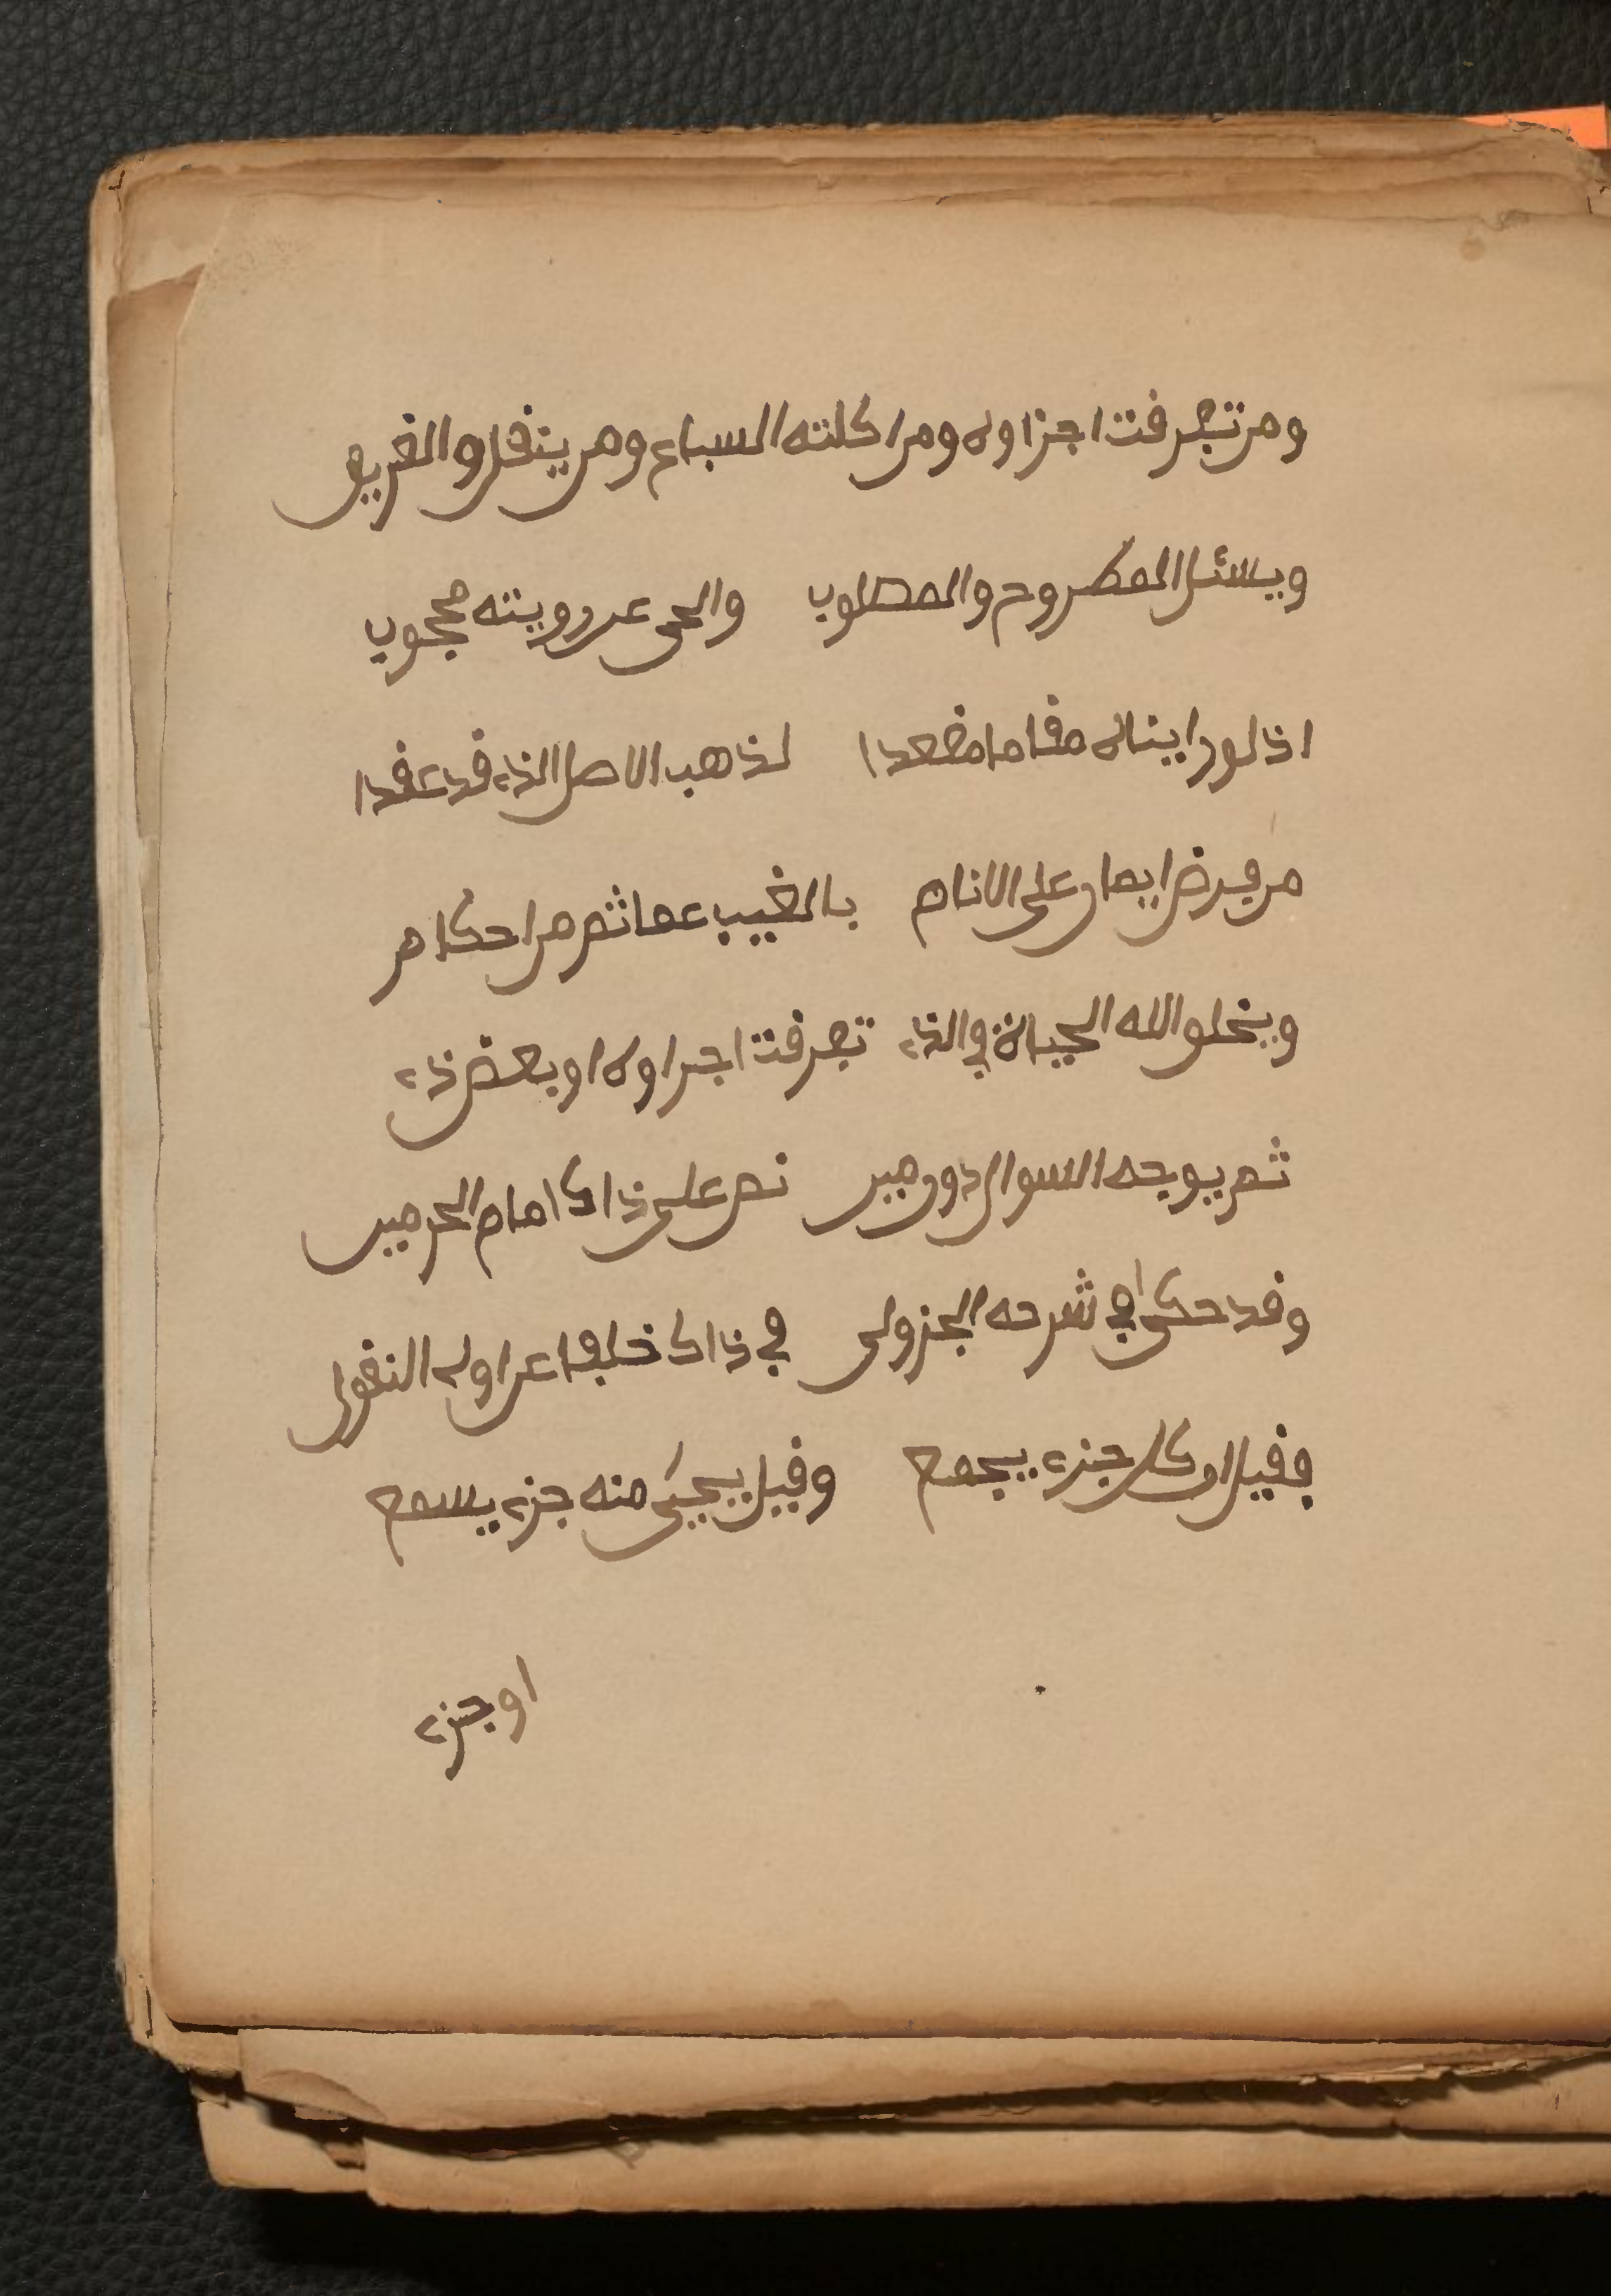 ومن تفرفت اجزاوه ومن اكلته السباع ومن ينفل والغريق
ويسئل المطروح والمصلوب والحى عن رويته محجوب
اذ لو راينا له مقاما مقعدا لذهب الاصل الذء قد عقدا
من فرض ايمان على الانام بالغيب عما ثم من احكام
ويخلو الله الحياة في الذء تفرفت اجزاوه او بعض ذء
ثم يوجه السوال دون مين نص على ذاك امام الحرمين
وقد حكى في شرحه الجزولى في ذاك خلفا عن اولى النقول
فقيل ان كل جزء يجمع وقيل يحيى منه جزء يسمع
او جزء